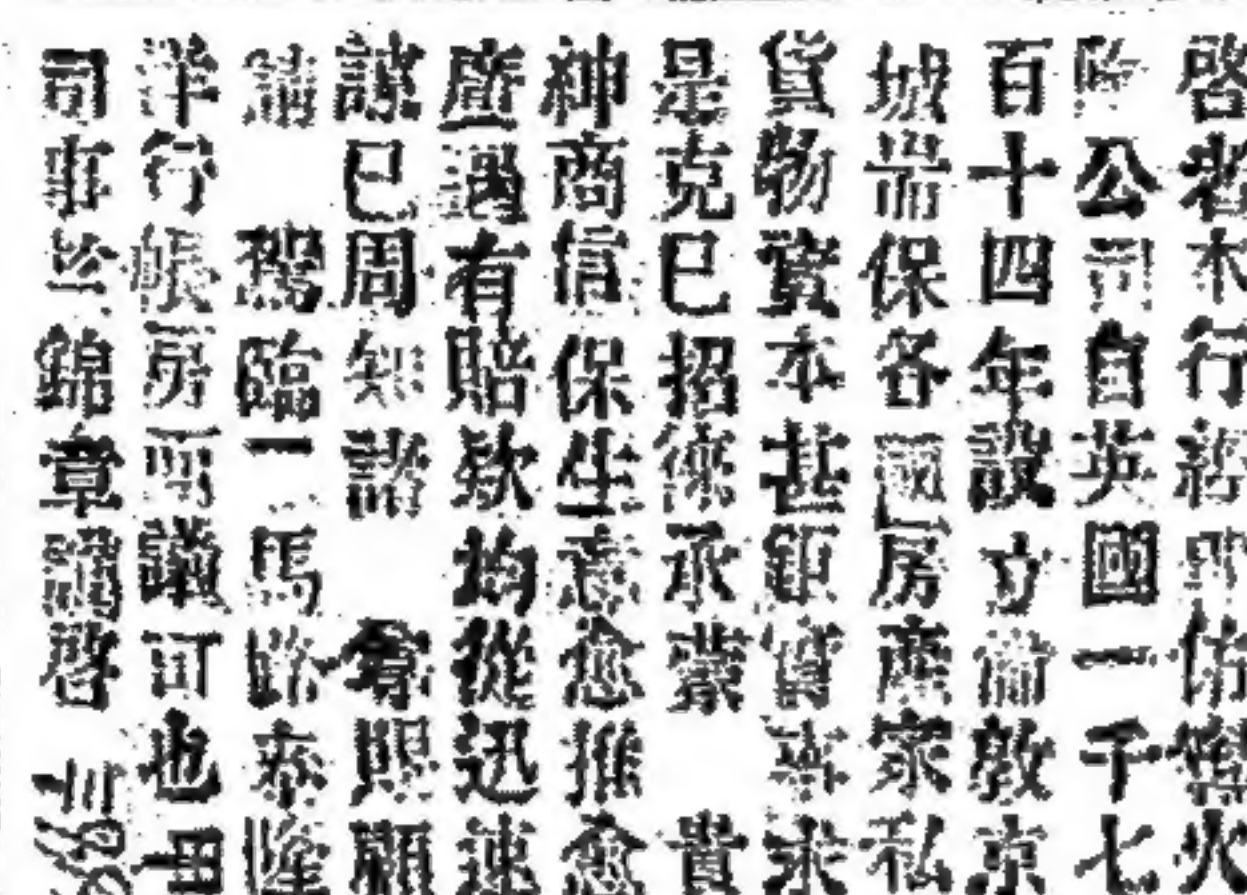 啓者本行經理保安火
險公司自英國一千七
百十四年設立倫敦京
城耑保各國房產家私
貨物資本甚鉅實業素
是克已招徠承蒙 貴
紳商信保生意愈推愈
廣遇有賠欵均從迅速
諒已周知諸 翁賜顧
請 駕臨一馬路泰隆
洋行帳房面議可也
司事竺錦章謹啓